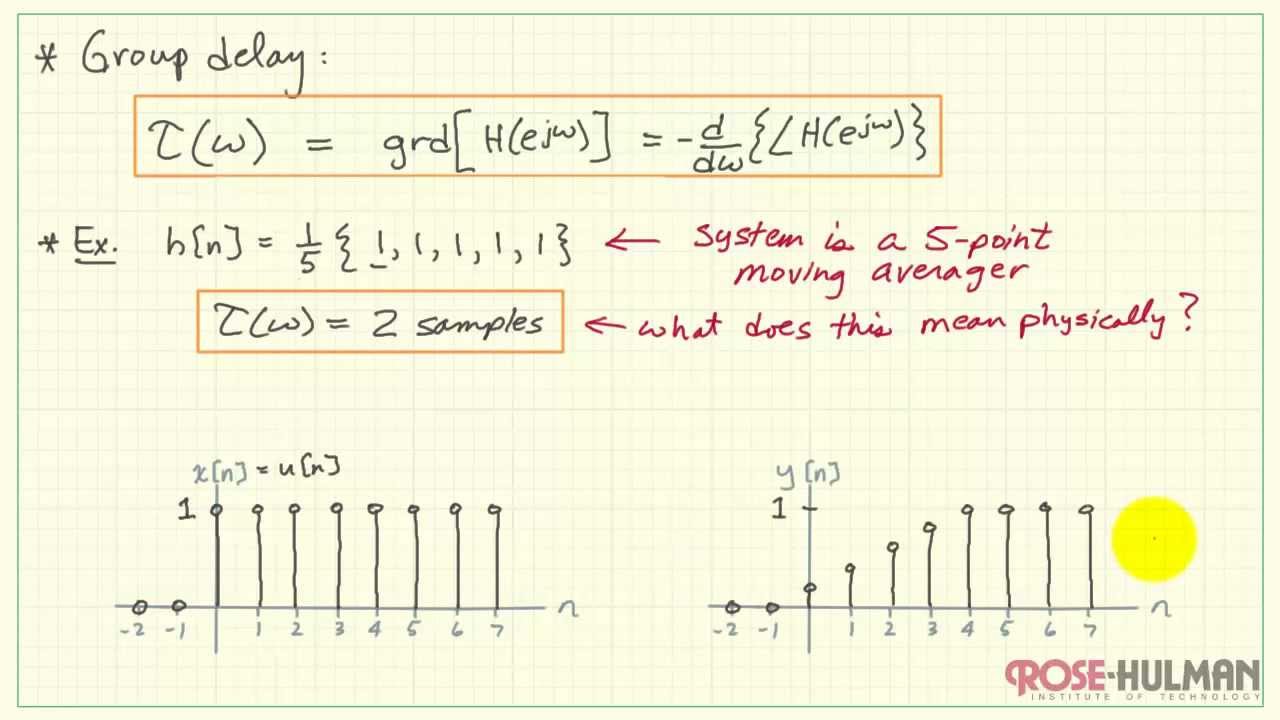 * Group delay:
τ(ω) = grd[H(e^jω)] = -d/dω{∠H(e^jω)}
* Ex. h[n] = 1/5 {1, 1, 1, 1, 1} ← System is a 5-point
moving averager
τ(ω) = 2 samples ← what does this mean physically?
x[n] = u[n]
1
-2 -1 1 2 3 4 5 6 7 n
y[n]
1
-2 -1 1 2 3 4 5 6 7 n
ROSE-HULMAN
INSTITUTE OF TECHNOLOGY